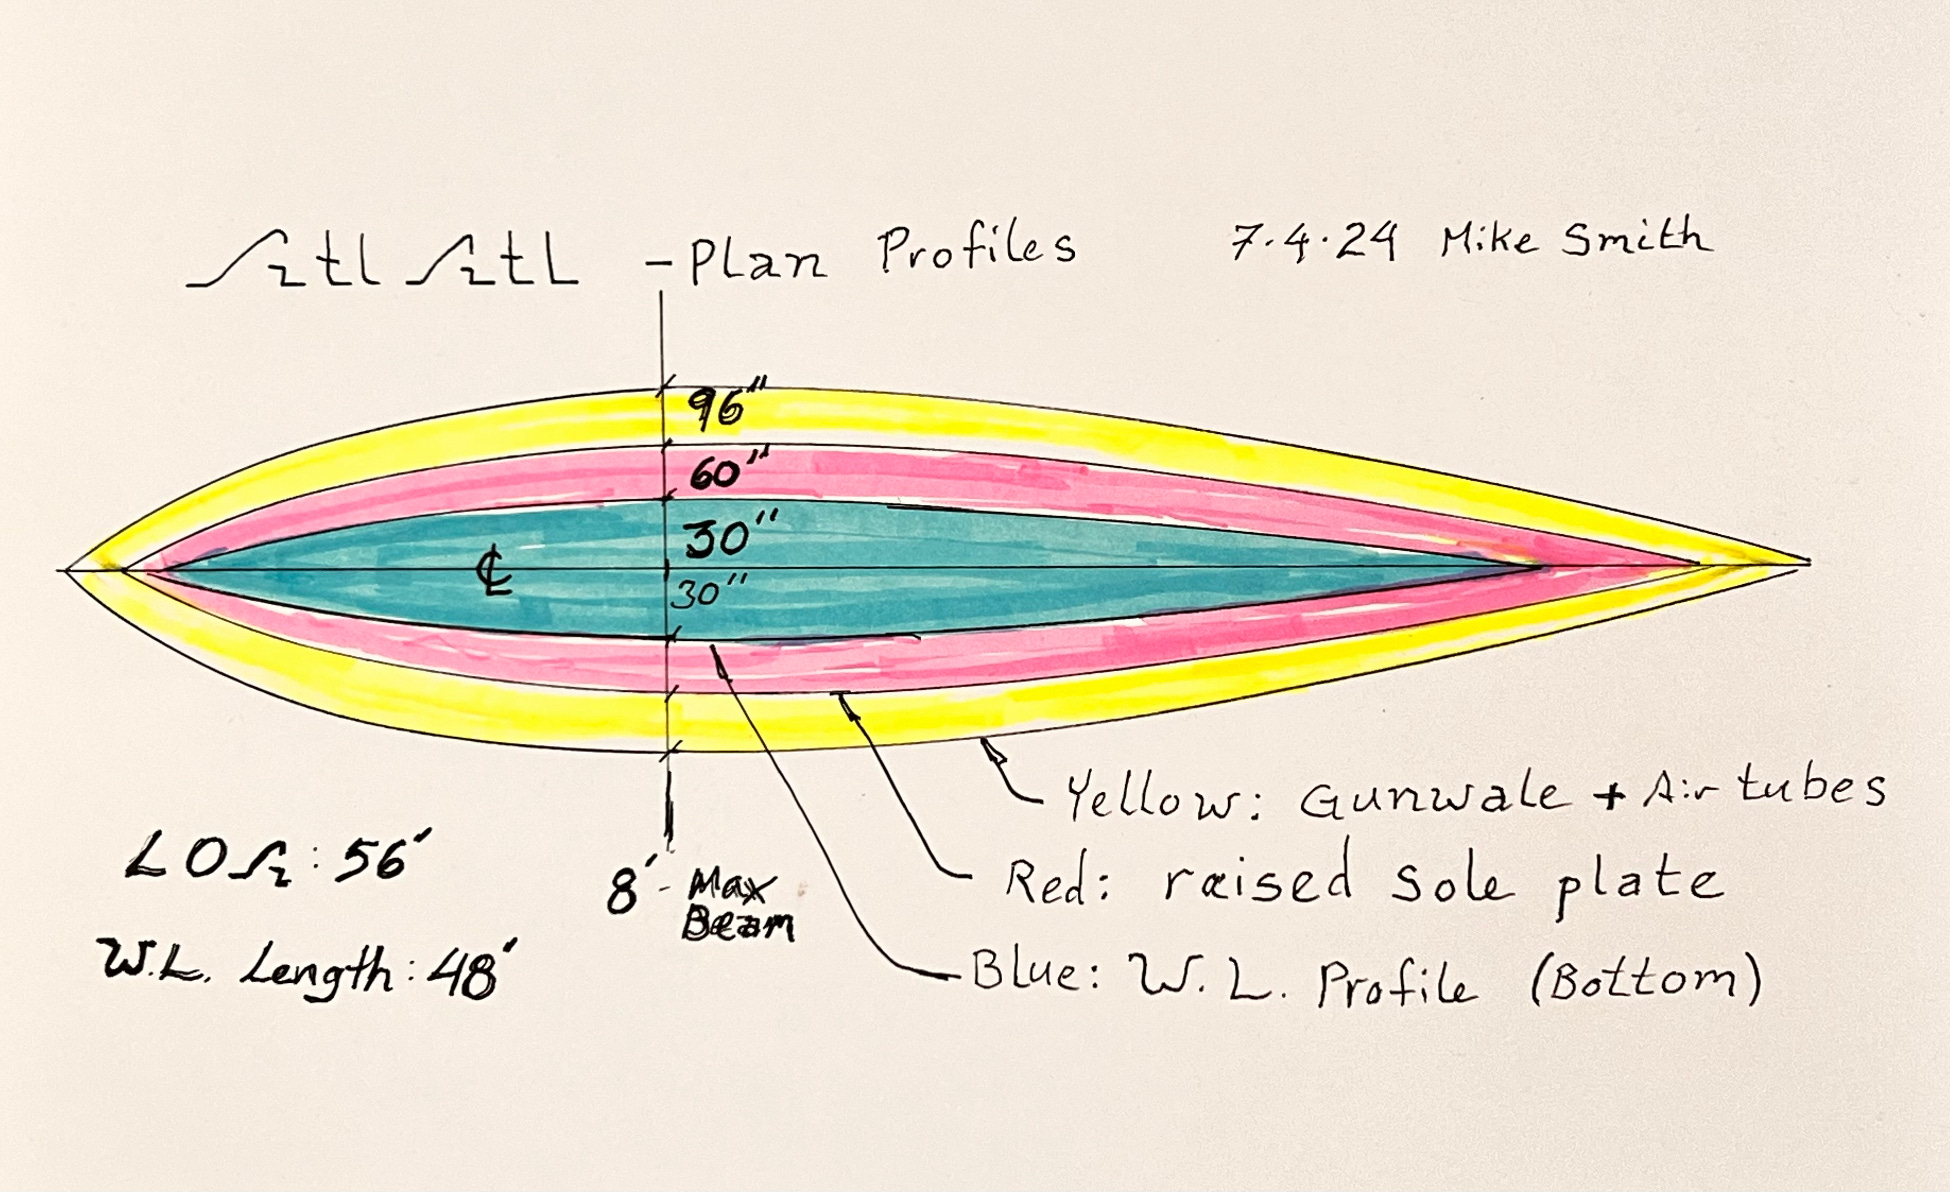 Atl Atl - Plan Profiles 7.4.24 Mike Smith
96"
60"
30"
℄
30"
Yellow: Gunwale + Air tubes
LOA: 56'
8' - Max
Beam
Red: raised sole plate
W.L. Length: 48'
Blue: W.L. Profile (Bottom)